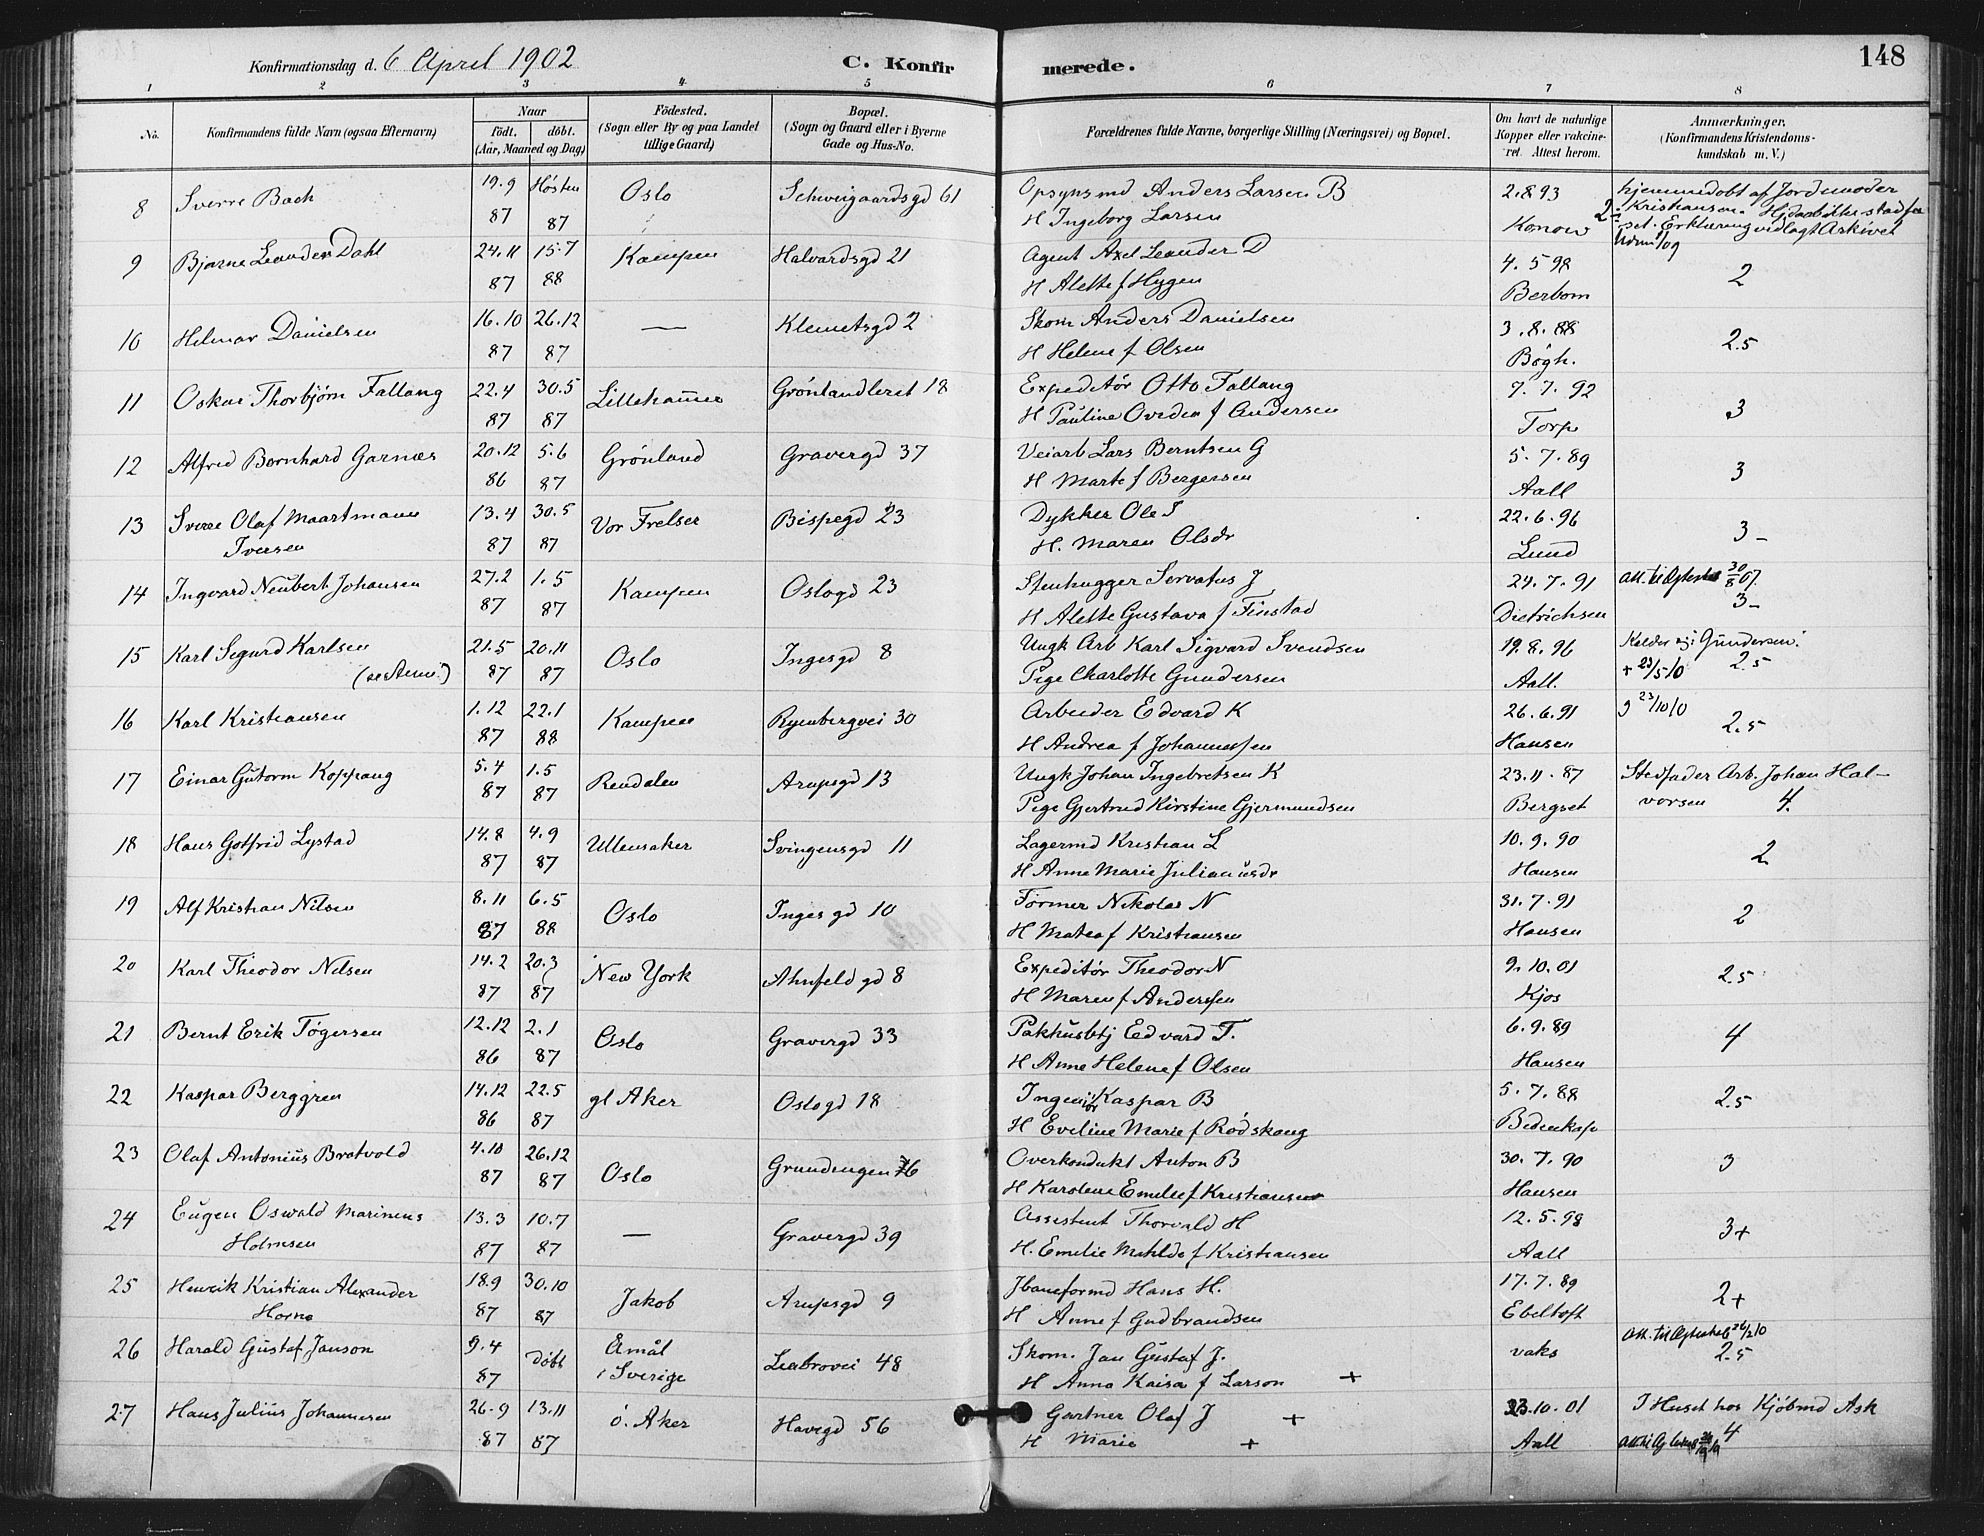 148
Konfirmationsdag d. 6 April 1902 C. Konfir merede.
1 2 3 4 5 6 7 8
No. Konfirmandens fulde Navn (ogsaa Efternavn) Naar født. døbt. (Aar, Maaned og Dag) Födested. (Sogn eller By og paa Landet tillige Gaard) Bopæl. (Sogn og Gaard eller i Byerne Gade og Hus-No. Forældrenes fulde Navne, borgerlige Stilling (Næringsvei) og Bopæl. Om havt de naturlige Kopper eller vakcineret. Attest herom. Anmærkninger, (Konfirmandens Kristendomskundskab m. V.)
8 Sverre Bach 19.9 Høsten Oslo Schweigaardsgd 61 Opsynsmd Anders Larsen B 2.8.93 hjemmedøbt af Jordmoder
87 87 H Ingeborg Larsen Konow 2 Kristiansen.
Erklæring vedlagt Arkivet
9 Bjarne Leander Dahl 24.11 15.7 Kampen Halvardsgd 21 Agent Axel Leander D 4.5 98
87 88 H Alette f Hygen Berbom 2
10 Helmar Danielsen 16.10 26.12 — Klemetsgd 2 Skom Anders Danielsen 3.8.88
87 87 H Helene f Olsen Bøgh. 2.5
11 Oskar Thorbjørn Fallang 22.4 30.5 Lillehammer Grønlandleret 18 Expeditør Otto Fallang 7.7.92
87 87 H Pauline Ovedia f Andersen Torp 3
12 Alfred Bernhard Garnæs 20.12 5.6 Grønland Gravergd 37 Veiarb Lars Berntsen G 5.7.89
86 87 H Marte f Bergersen Aall 3
13 Sverre Olaf Maartmann 13.4 30.5 Vor Frelser Bispegd 23 Dykker Ole I 22.6.96
Iversen 87 87 H. Maren Olsdr Lund 3-
14 Ingvard Neubert Johansen 27.2 1.5 Kampen Oslogd 23 Stenhugger Servatus J 24.7.91 Att. til Ægteskab 30/8 07.
87 87 H Alette Gustava f Finstad Dietrichsen 3-
15 Karl Segurd Karlsen 21.5 20.11 Oslo Ingesgd 8 Ungk Arb Karl Sigvard Svendsen 19.8.96 Kalder sig: Gundersen.
(se Anm.) 87 87 Pige Charlotte Gundersen Aall. + 23/5 10 2.5
16 Karl Kristiansen 1.12 22.1 Kampen Ryenbergvei 30 Arbeider Edvard K 26.6.91 23/10/0
87 88 H Andrea f Johannessen Hansen 2.5
17 Einar Gutorm Koppang 5.4 1.5 Rendalen Arupsgd 13 Ungk Johan Ingebretsen K 23.11.87 Stedfader Arb. Johan Hal-
87 87 Pige Gjertrud Kirstine Gjermundsen Bergset vorsen 4.
18 Hans Gotfrid Lystad 14.8 4.9 Ullensaker Svingensgd 11 Lagermd Kristian L 10.9.90
87 87 H Anne Marie Julianusdr Hansen 2
19 Alf Kristian Nilsen 8.11 6.5 Oslo Ingesgd 10 Former Nikolai N 31.7.91
87 88 H Matea f Kristiansen Hansen 2
20 Karl Theodor Nilsen 14.2 20.3 New York Ahnfeldgd 8 Expeditør Theodor N 9.10.01
87 87 H Maren f Anderssen Kjos 2.5
21 Bernt Erik Tøgersen 12.12 2.1 Oslo Gravergd 33 Pakhusbtj Edvard T. 6.9.89
86 87 H Anne Helene f Olsen Hansen 4
22 Kaspar Berggren 14.12 22.5 gl Aker Oslogd 18 Ingeniør Kaspar B 5.7.88
86 87 H Eveline Marie f Rødskong Bidenkap 2.5
23 Olaf Antonius Bratvold 4.10 26.12 Oslo Grundingen 6 Overkondukt Anton B 30.7.90
87 87 H Karolene Emilie f Kristiansen Hansen 3
24 Eugen Oswald Marinius 13.3 10.7 — Gravergd 39 Assistent Thorvald H 12.5.98
Holmsen 87 87 H. Emilie Matilde f Kristiansen Aall 3+
25 Henrik Kristian Alexander 18.9 30.10 Jakob Arupsgd 9 Jbaneformd Hans H. 17.7.89
Horne 87 87 H Anne f Gudbrandsen Ebeltoft 2+
26 Harald Gustaf Janson 9.4 døbt Åmål Ljabrovei 48 Skom. Jan Gustaf J. vaks Att. til Ægteskab
87 i Sverige H Anna Kaisa f Larson + 2.5
27 Hans Julius Johannesen 26.9 13.11 ö. Aker Havegd 56 Gartner Olaf J + 23.10.01 I Huset hos Kjøbmd Ask
87 87 H Marie + Aall 4